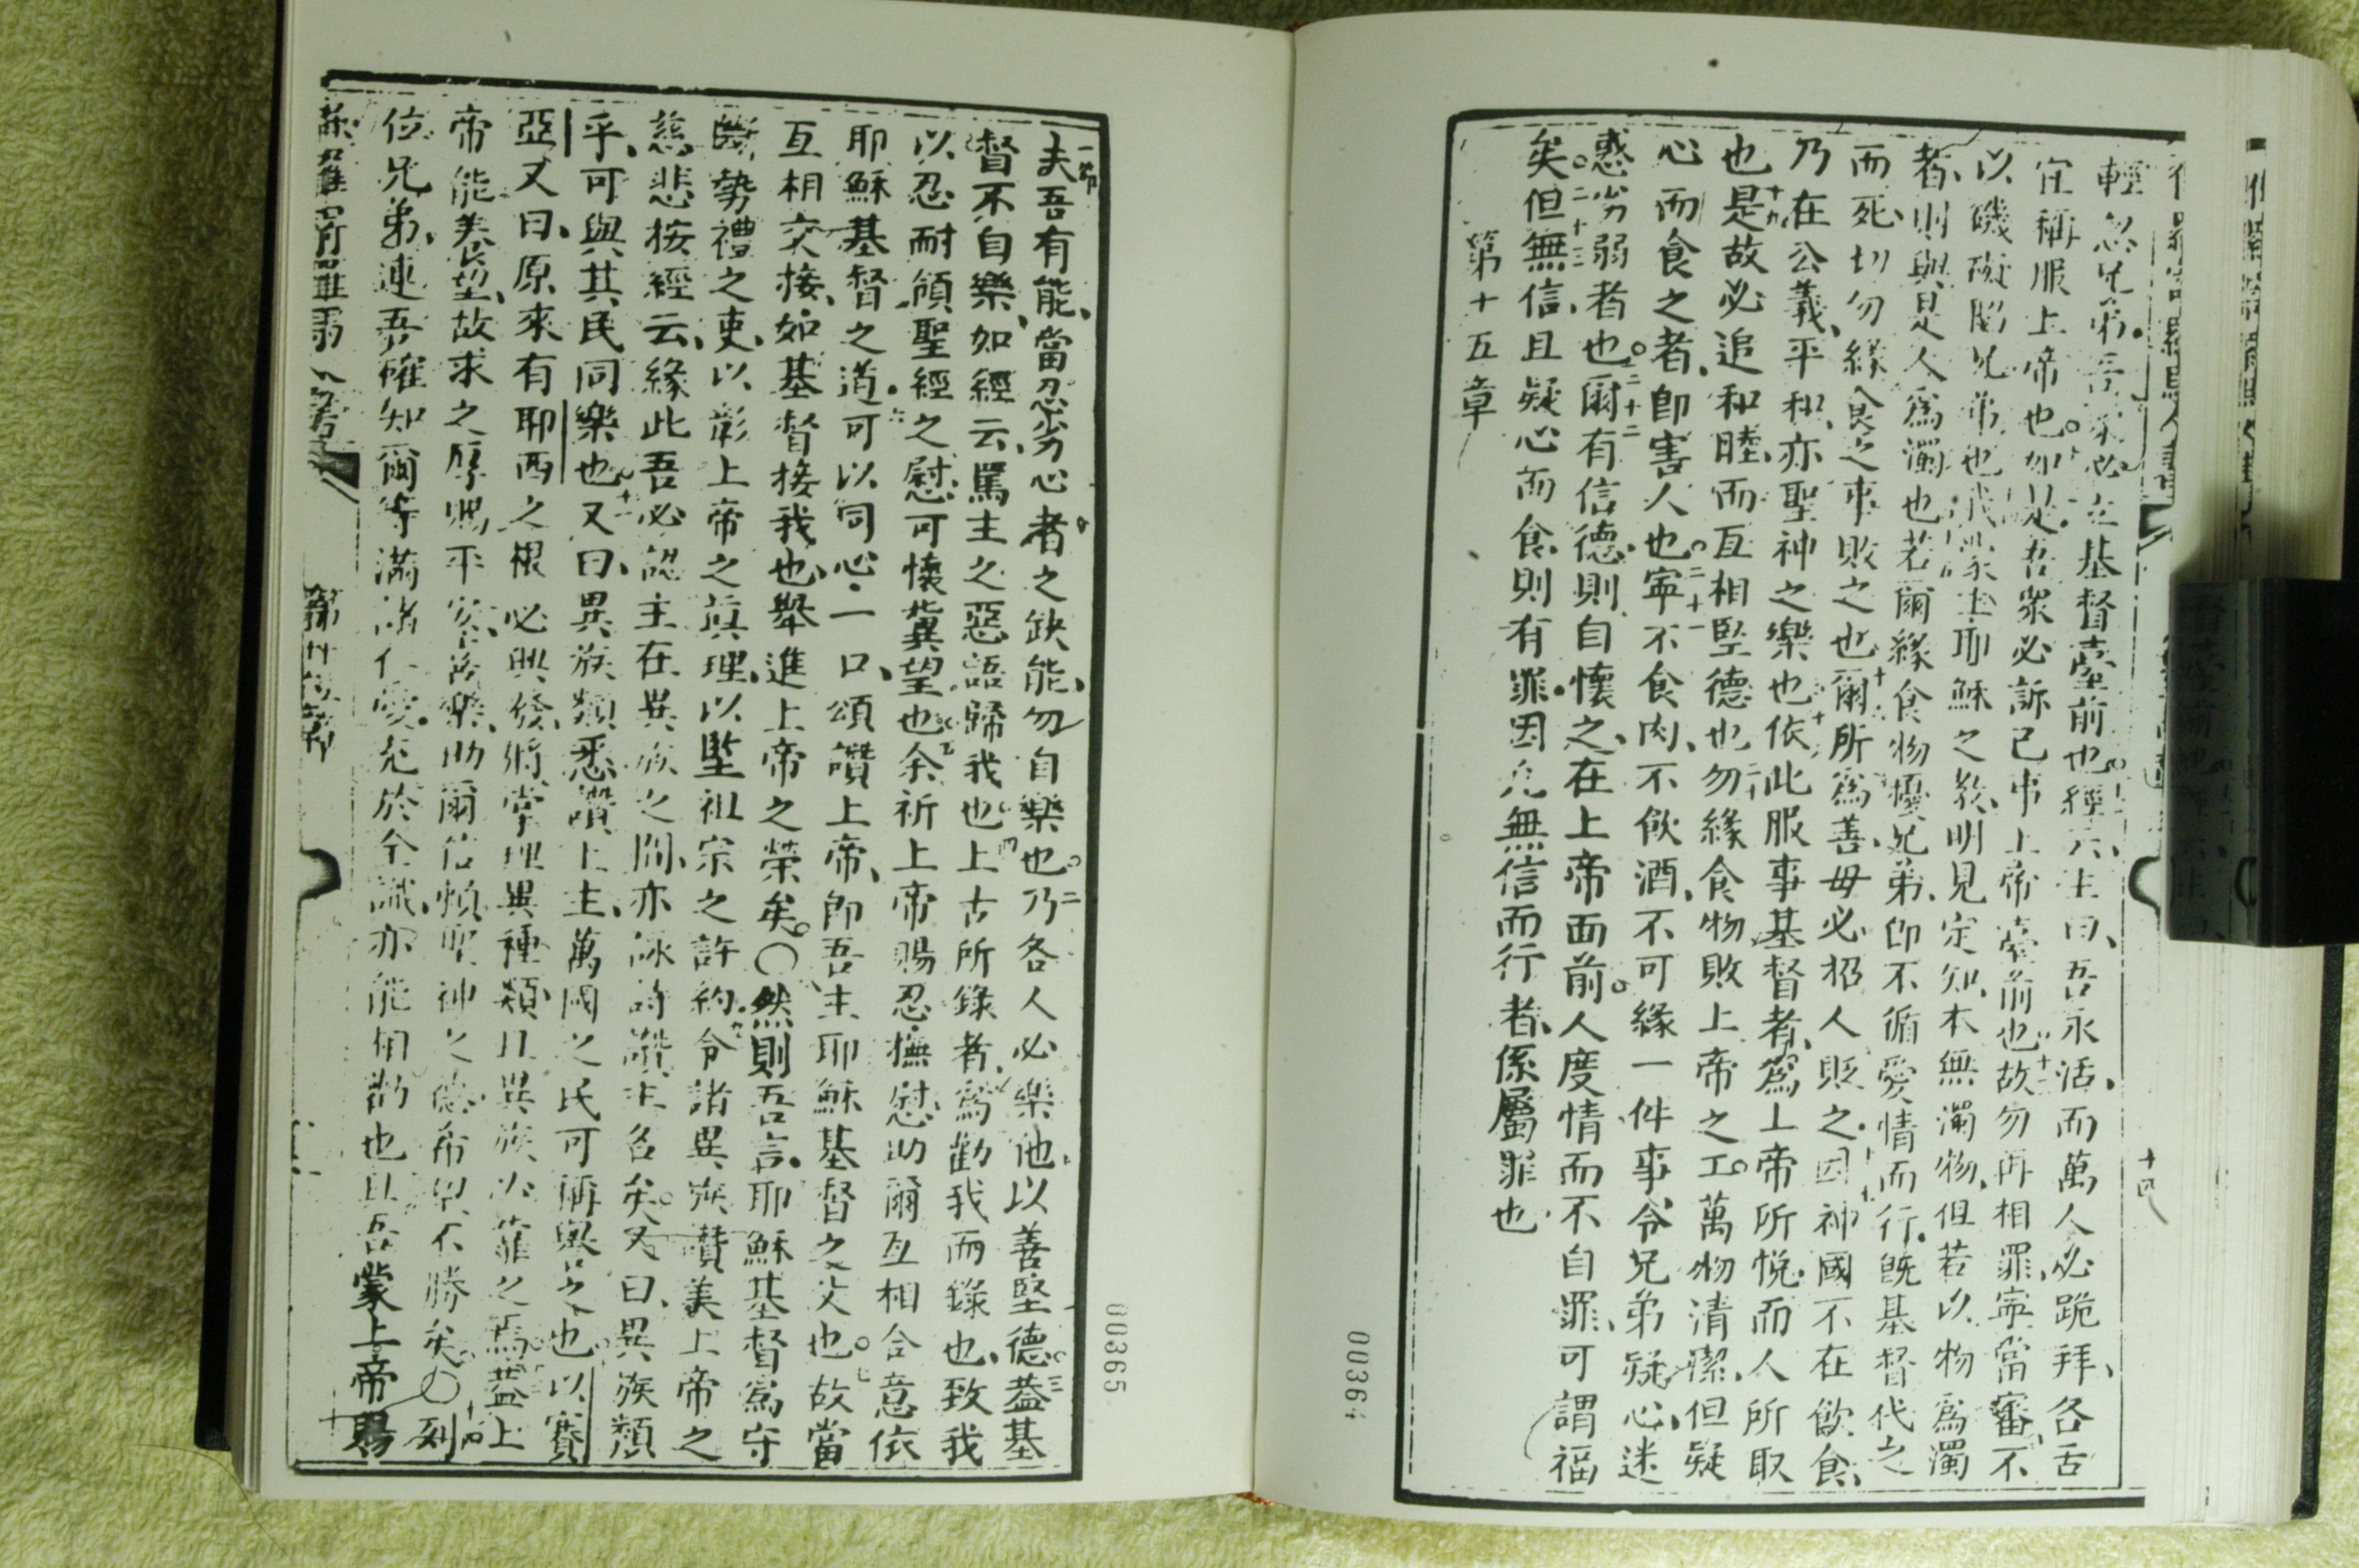 輕忽兄弟吾衆必立基督臺前也經云主曰吾永活而萬人必跪拜各舌
宜稱服上帝也如是吾衆必訴己事上帝臺前也故勿再相罪寧當審不
以磯礙陷兄弟也我蒙主耶穌之教明見定知本無濁物但若以物爲濁
者則與是人爲濁也若爾緣食物擾兄弟卽不循愛情而行旣基督代之
而死切勿緣食之事敗之也爾所爲善毋必招人貶之因神國不在飮食
乃在公義平和亦聖神之樂也依此服事基督者爲上帝所悅而人所取
也是故必追和睦而互相堅德也勿緣食物敗上帝之工萬物清潔但疑
心而食之者卽害人也寧不食肉不飮酒不可緣一件事令兄弟疑心迷
惑劣弱者也爾有信德則自懷之在上帝面前人度情而不自罪可謂福
矣但無信且疑心而食則有罪因凡無信而行者係屬罪也
第十五章
00364
夫吾有能當忍劣心者之缺能勿自樂也乃各人必樂他以善堅德蓋基
督不自樂如經云罵主之惡語歸我也上古所錄者爲勸我而錄也致我
以忍耐領聖經之慰可懷冀望也余祈上帝賜忍撫慰助爾互相合意依
耶穌基督之道可以同心一口頌讚上帝卽吾主耶穌基督之父也故當
互相交接如基督接我也舉進上帝之榮矣〇然則吾言耶穌基督爲守
斷勢禮之吏以彰上帝之眞理以堅祖宗之許約令諸異族讚美上帝之
慈悲按經云緣此吾必認主在異族之間亦詠詩讚主名矣又曰異族類
乎可與其民同樂也又曰異族類悉讚上主萬國之民可稱譽之也以賽
亞又曰原來有耶西之根必興發將掌理異種類且異族必賴之焉蓋上
帝能養望故求之厚賜平安喜樂助爾信賴聖神之德希望不勝矣〇列
位兄弟連吾確知爾等滿諸仁愛充於全識亦能相勸也且吾蒙上帝賜
00365